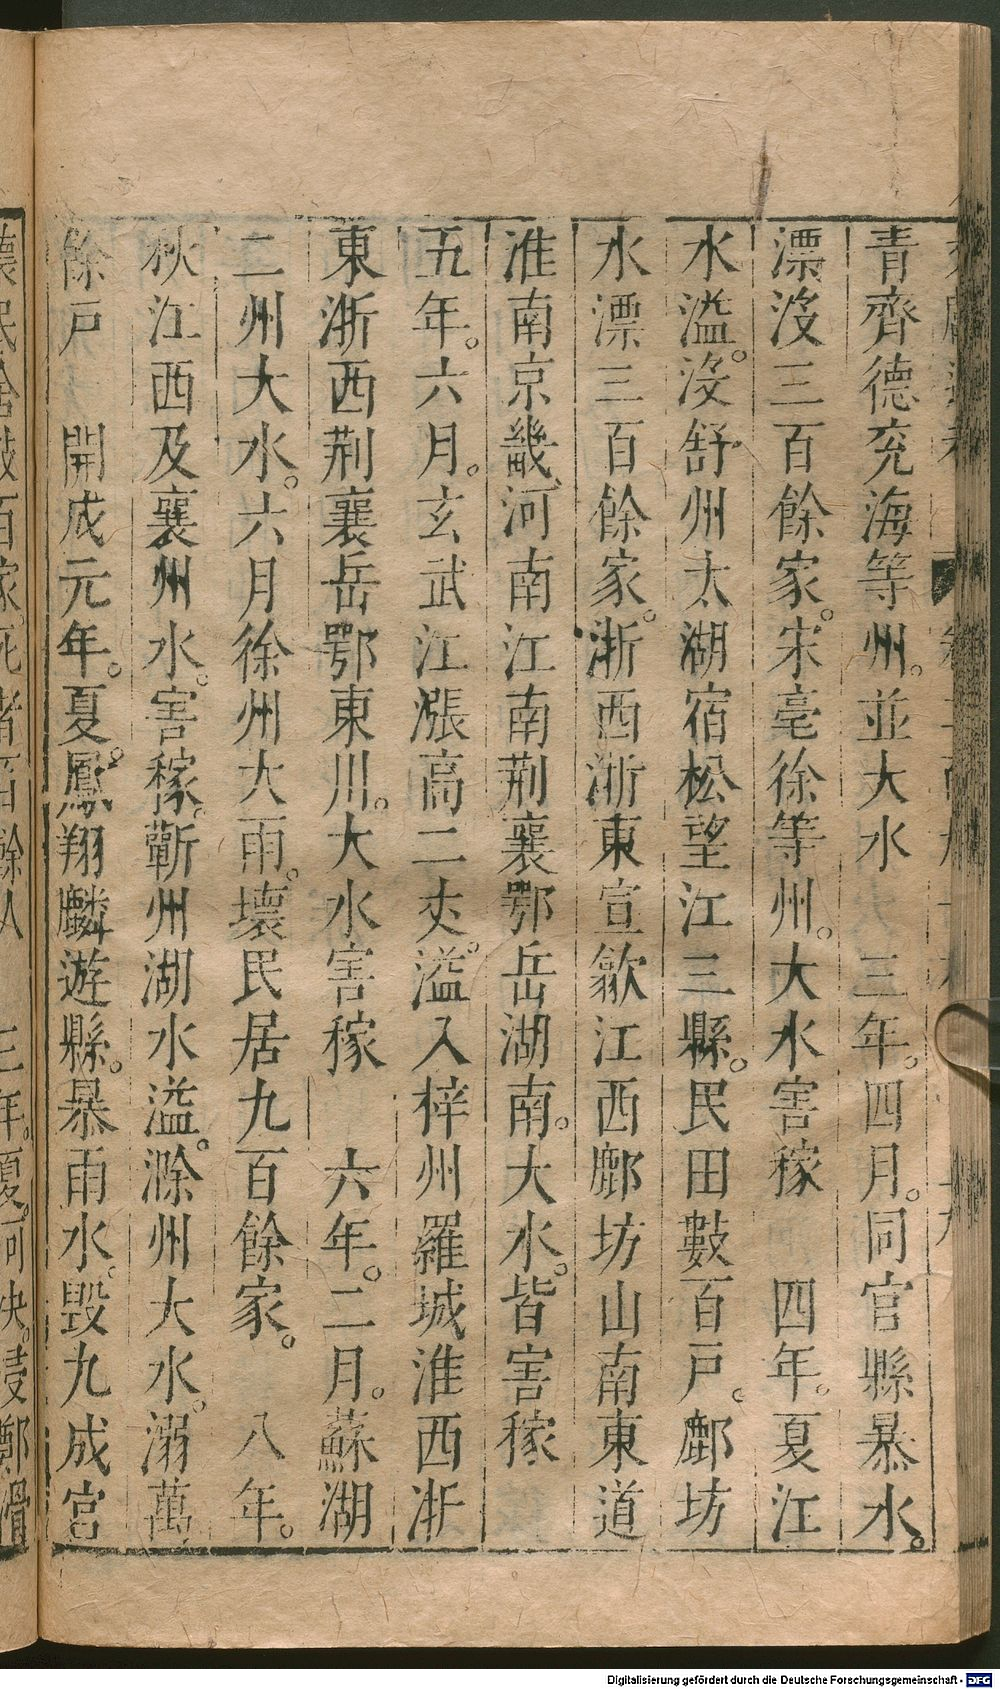 青齊德兖海等州。並大水　三年。四月。同官縣暴水。
漂没三百餘家。宋亳徐等州。大水害稼　四年。夏江
水溢。没舒州太湖宿松望江三縣。民田數百戸。鄜坊
水漂三百餘家。浙西浙東宣歙江西鄜坊山南東道
淮南京畿河南江南荆襄鄂岳湖南。大水。皆害稼
五年。六月。玄武江漲高二丈。溢入梓州羅城淮西浙
東浙西荆襄岳鄂東川。大水害稼　六年。二月。蘇湖
二州大水。六月徐州大雨。壞民居九百餘家。　八年。
秋江西及襄州水。害稼。蘄州湖水溢。滁州大水。溺萬
餘戸　開成元年。夏。鳳翔麟遊縣。暴雨水。毁九成宫
Digitalisierung gefördert durch die Deutsche Forschungsgemeinschaft - DFG